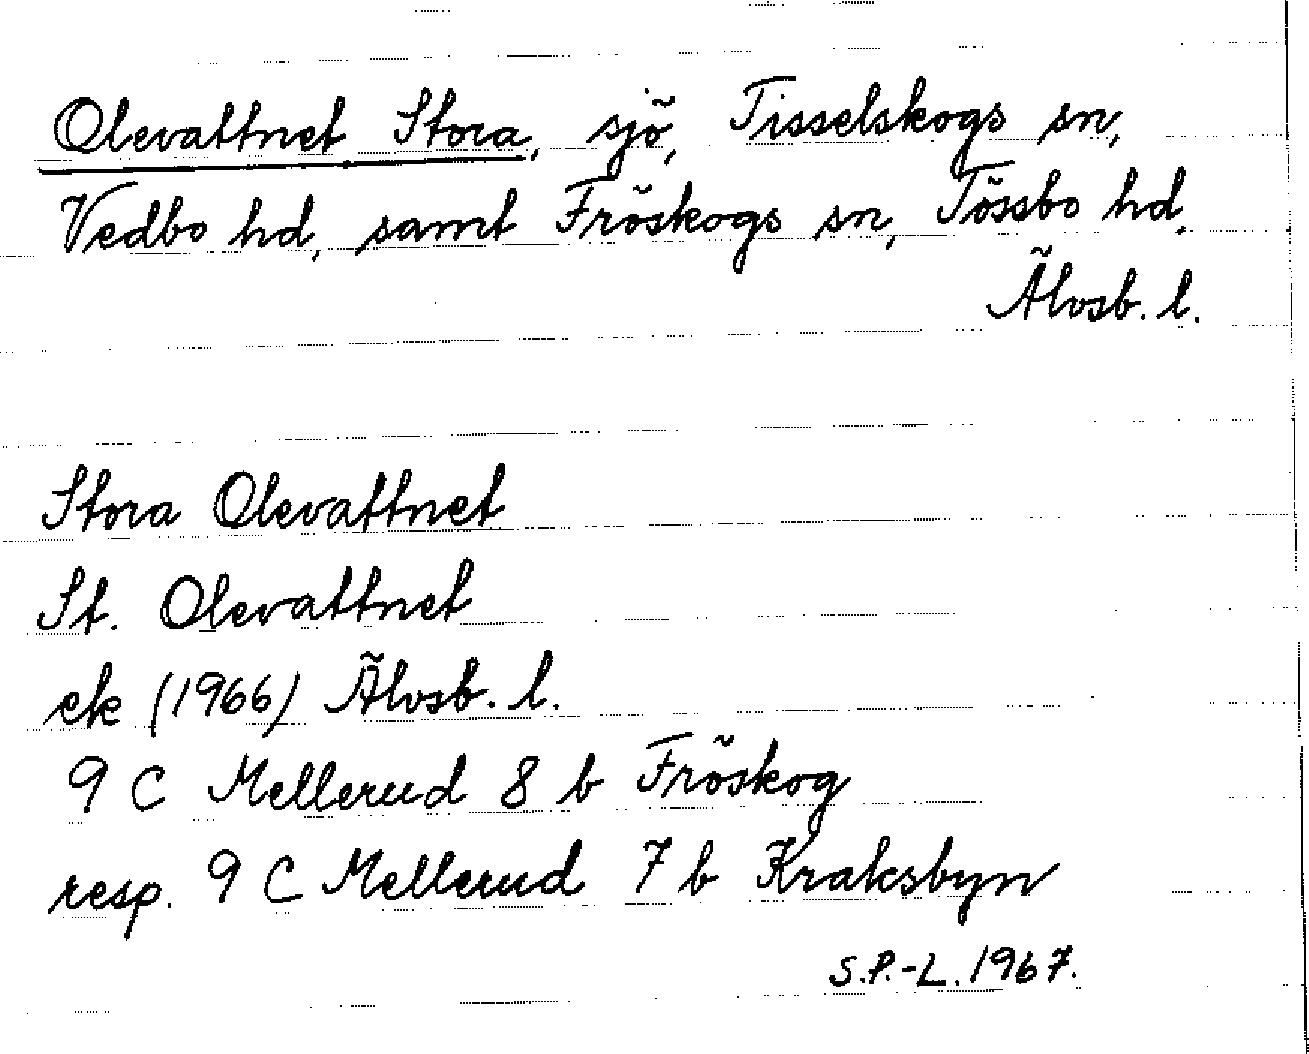 Olevattnet Stora, sjö, Tisselskogs sn,
Vedbo hd, samt Fröskogs sn, Tössbo hd.
Älvsb. l.
Stora Olevattnet
St. Olevattnet
ek (1966) Älvsb. l.
9 C Mellerud 8 b Fröskog
resp. 9 C Mellerud 7 b Kraksbyn
S.P.-L. 1967.